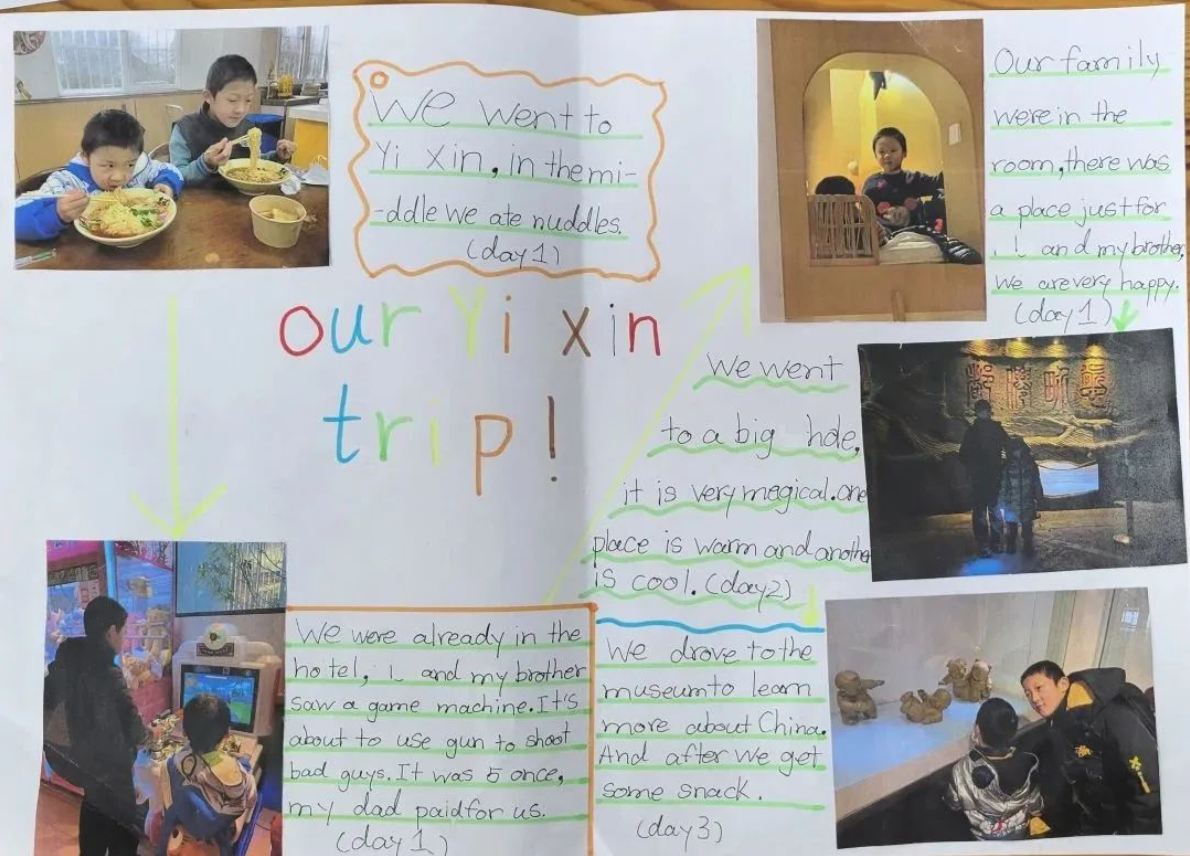 We went to
Yi xin, in the mi-
-ddle we ate nuddles.
(day 1)
our Yi xin
trip!
We were already in the
hotel, I and my brother
saw a game machine. It's
about to use gun to shoot
bad guys. It was 5 once,
my dad paid for us.
(day 1)
Our family
were in the
room, there was
a place just for
I and my brother,
We are very happy.
(day 1)
We went
to a big hole,
it is very magical. One
place is warm and another
is cool. (day2)
We drove to the
museum to learn
more about China.
And after we get
some snack.
(day3)